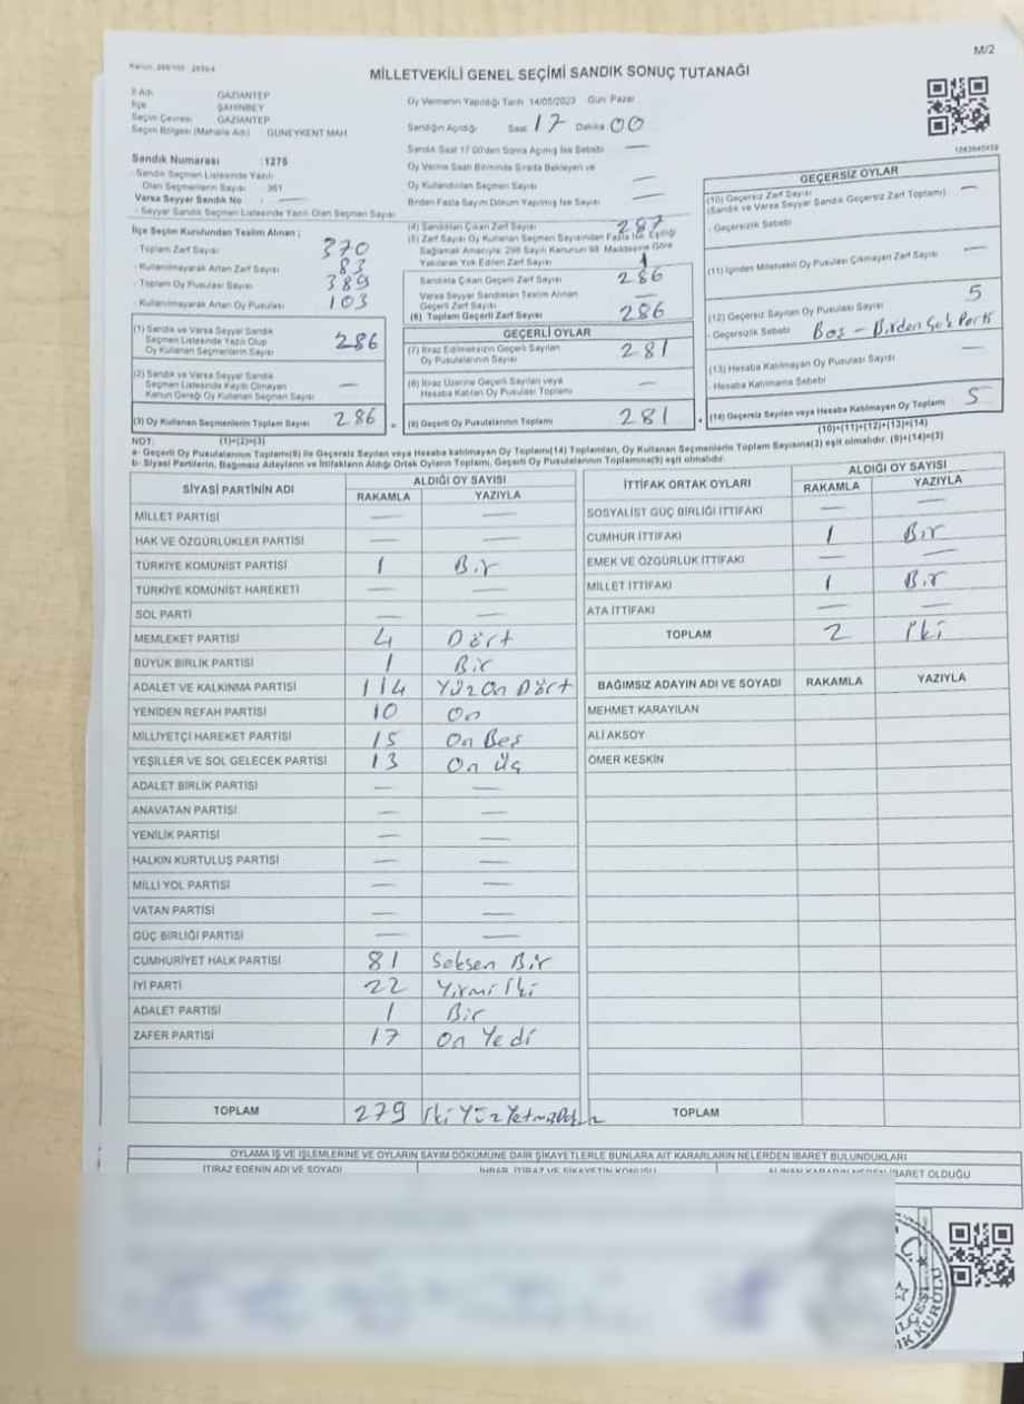 M/2
MİLLETVEKİLİ GENEL SEÇİMİ SANDIK SONUÇ TUTANAĞI
İl Adı GAZİANTEP
İlçe ŞAHİNBEY
Seçim Çevresi GAZİANTEP
Seçim Bölgesi (Mahalle Adı) GÜNEYKENT MAH
Sandık Numarası :1275
Sandık Seçmen Listesinde Yazılı
Olan Seçmenlerin Sayısı 361
Varsa Seyyar Sandık No : —
- Seyyar Sandık Seçmen Listesinde Yazılı Olan Seçmen Sayısı
Oy Vermenin Yapıldığı Tarih 14/05/2023 Gün Pazar
Sandığın Açıldığı Saat 17 Dakika 00
Sandık Saat 17.00'den Sonra Açılmış İse Sebebi —
Oy Verme Saati Bitiminde Sırada Bekleyen ve
Oy Kullandırılan Seçmen Sayısı —
Birden Fazla Sayım Döküm Yapılmış İse Sayısı —
İlçe Seçim Kurulundan Teslim Alınan ;
- Toplam Zarf Sayısı 370
- Kullanılmayarak Artan Zarf Sayısı 83
- Toplam Oy Pusulası Sayısı 389
- Kullanılmayarak Artan Oy Pusulası 103
(1) Sandık ve Varsa Seyyar Sandık
Seçmen Listesinde Yazılı Olup
Oy Kullanan Seçmenlerin Sayısı 286
(2) Sandık ve Varsa Seyyar Sandık
Seçmen Listesinde Kayıtlı Olmayan
Kanun Gereği Oy Kullanan Seçmen Sayısı —
(3) Oy Kullanan Seçmenlerin Toplam Sayısı 286
(1)+(2)=(3)
(4) Sandıktan Çıkan Zarf Sayısı 287
(5) Zarf Sayısı Oy Kullanan Seçmen Sayısından Fazla İse, Eşitliği
Sağlamak Amacıyla; 298 Sayılı Kanunun 98. Maddesine Göre
Yakılarak Yok Edilen Zarf Sayısı 1
Sandıkta Çıkan Geçerli Zarf Sayısı 286
Varsa Seyyar Sandıktan Teslim Alınan
Geçerli Zarf Sayısı —
(6) Toplam Geçerli Zarf Sayısı 286
GEÇERLİ OYLAR
(7) İtiraz Edilmeksizin Geçerli Sayılan
Oy Pusulalarının Sayısı 281
(8) İtiraz Üzerine Geçerli Sayılan veya
Hesaba Katılan Oy Pusulası Toplamı —
(9) Geçerli Oy Pusulalarının Toplamı 281
GEÇERSİZ OYLAR
(10) Geçersiz Zarf Sayısı
(Sandık ve Varsa Seyyar Sandık Geçersiz Zarf Toplamı) —
- Geçersizlik Sebebi
(11) İçinden Milletvekili Oy Pusulası Çıkmayan Zarf Sayısı —
(12) Geçersiz Sayılan Oy Pusulası Sayısı 5
- Geçersizlik Sebebi Boş - Birden Çok Parti
(13) Hesaba Katılmayan Oy Pusulası Sayısı —
Hesaba Katılmama Sebebi
(14) Geçersiz Sayılan veya Hesaba Katılmayan Oy Toplamı 5
(10)+(11)+(12)+(13)=(14)
NOT:
a- Geçerli Oy Pusulalarının Toplamı(9) ile Geçersiz Sayılan veya Hesaba katılmayan Oy Toplamı(14) Toplamları, Oy Kullanan Seçmenlerin Toplam Sayısına(3) eşit olmalıdır. (9)+(14)=(3)
b- Siyasi Partilerin, Bağımsız Adayların ve İttifakların Aldığı Ortak Oyların Toplamı, Geçerli Oy Pusulalarının Toplamına(9) eşit olmalıdır.
SİYASİ PARTİNİN ADI ALDIĞI OY SAYISI
RAKAMLA YAZIYLA
MİLLET PARTİSİ — —
HAK VE ÖZGÜRLÜKLER PARTİSİ — —
TÜRKİYE KOMÜNİST PARTİSİ 1 Bir
TÜRKİYE KOMÜNİST HAREKETİ — —
SOL PARTİ — —
MEMLEKET PARTİSİ 4 Dört
BÜYÜK BİRLİK PARTİSİ 1 Bir
ADALET VE KALKINMA PARTİSİ 114 Yüz On Dört
YENİDEN REFAH PARTİSİ 10 On
MİLLİYETÇİ HAREKET PARTİSİ 15 On Beş
YEŞİLLER VE SOL GELECEK PARTİSİ 13 On Üç
ADALET BİRLİK PARTİSİ — —
ANAVATAN PARTİSİ — —
YENİLİK PARTİSİ — —
HALKIN KURTULUŞ PARTİSİ — —
MİLLİ YOL PARTİSİ — —
VATAN PARTİSİ — —
GÜÇ BİRLİĞİ PARTİSİ — —
CUMHURİYET HALK PARTİSİ 81 Seksen Bir
İYİ PARTİ 22 Yirmi İki
ADALET PARTİSİ 1 Bir
ZAFER PARTİSİ 17 On Yedi
TOPLAM 279 İki Yüz
İTTİFAK ORTAK OYLARI ALDIĞI OY SAYISI
RAKAMLA YAZIYLA
SOSYALİST GÜÇ BİRLİĞİ İTTİFAKI — —
CUMHUR İTTİFAKI 1 Bir
EMEK VE ÖZGÜRLÜK İTTİFAKI — —
MİLLET İTTİFAKI 1 Bir
ATA İTTİFAKI — —
TOPLAM 2 İki
BAĞIMSIZ ADAYIN ADI VE SOYADI RAKAMLA YAZIYLA
MEHMET KARAYILAN
ALİ AKSOY
ÖMER KESKİN
TOPLAM
OYLAMA İŞ VE İŞLEMLERİNE VE OYLARIN SAYIM DÖKÜMÜNE DAİR ŞİKAYETLERLE BUNLARA AİT KARARLARIN NELERDEN İBARET BULUNDUKLARI
İTİRAZ EDENİN ADI VE SOYADI İHBAR, İTİRAZ VE ŞİKAYETİN KONUSU ALINAN KARARIN NEDEN İBARET OLDUĞU